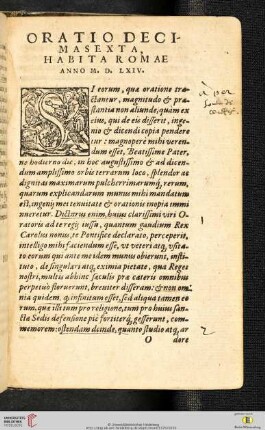 ORATIO DECI-
MASEXTA,
HABITA ROMAE
ANNO M. D. LXIV.
SI eorum, quæ oratione tra-
ctantur, magnitudo & præ-
stantia non aliunde, quàm ex
eius, qui de eis disserit, inge-
nio & dicendi copia pendere-
tur: magnopere mihi veren-
dum esset, Beatissime Pater,
ne hodierno die, in hoc augustissimo & ad dicen-
dum amplissimo orbis terrarum loco, splendor ac
dignitas maximarum pulcherrimarumq́, rerum,
quarum explicandarum munus mihi mandatum
est, ingenij mei tenuitate & orationis inopia immi-
nueretur. Doctorus enim, huius clarissimi viri O-
ratoris ad te regij iussu, quantum gaudium Rex
Carolus nonus, te Pontifice declarato, perceperit,
intelligo mihi faciendum esse, vt veteri atq, vsita-
to eorum qui ante me idem munus obierunt, insti-
tuto, de singulari atq, eximia pietate, qua Reges
nostri, multis abhinc sæculis præ cæteris omnibus
perpetuò floruerunt, breuiter disseram: & non om-
nia quidem, q, infinitum esset, sed aliqua tamen eo-
rum, quæ illi tum pro religione, tum pro huius san-
ctæ Sedis defensione piè fortiterq́, gesserunt, com-
memorem: ostendam deinde, quanto studio atq, ar-
O dore
2